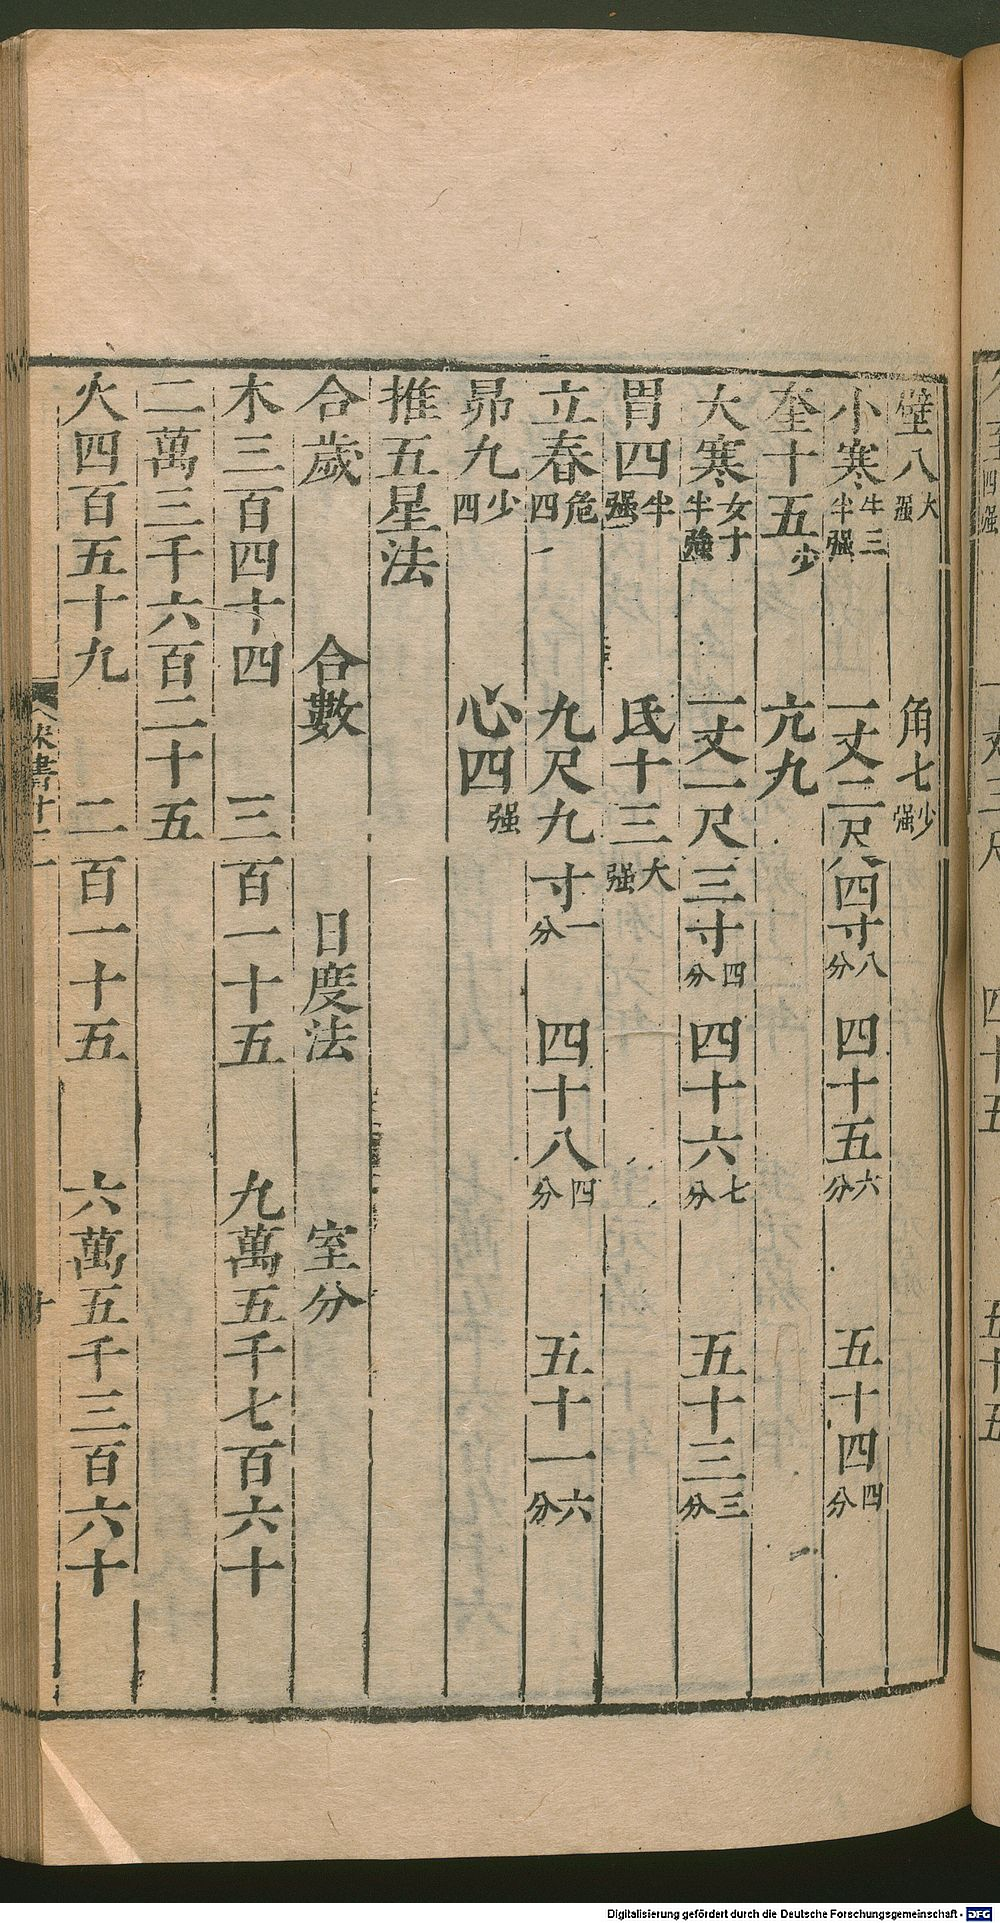 壁八大强 角七少强
小寒牛三半强 一丈二尺四寸八分 四十五六分 五十四四分
奎十五少 亢九
大寒女十半強 一丈一尺三寸四分 四十六七分 五十三三分
胃四半强 氐十三大强
立春危四 九尺九寸一分 四十八四分 五十一六分
昴九少四 心四强
推五星法
合歲 合數 日度法 室分
木三百四十四 三百一十五 九萬五千七百六十
二萬三千六百二十五
火四百五十九 二百一十五 六萬五千三百六十
宋書十二
Digitalisierung gefördert durch die Deutsche Forschungsgemeinschaft - DFG